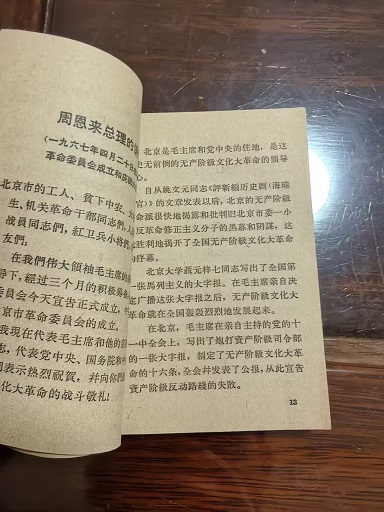 周恩来总理的
(一九六七年四月二十日
革命委员会成立和庆祝
北京市的工人、貧下中农、
生、机关革命干部同志們,
战員同志們,紅卫兵小将們,
友們:
在我們伟大領袖毛主席的
导下,經过三个月的积极
委員会今天宣告正式成立,
京市革命委員会的成立,
我現在代表毛主席和他的
志,代表党中央、国务院和
表示热烈祝賀,并向你們
化大革命的战斗敬礼!
北京是毛主席和党中央的住地,是这
史无前例的无产阶级文化大革命的領导
心。
自从姚文元同志《評新編历史剧〈海瑞
官〉》的文章发表以后,北京的无产阶级
命派很快地揭露和批判旧北京市委一小
反革命修正主义分子的黑幕和阴謀,这
胜利地揭开了全国无产阶级文化大革命
的序幕。
北京大学聶元梓七同志写出了全国第
一张馬列主义的大字报。在毛主席亲自决
定广播这张大字报之后,无产阶级文化大
革命就在全国轰轰烈烈地发展起来。
在北京,毛主席在亲自主持的党的十
一中全会上,写出了炮打資产阶级司令部
的一张大字报,制定了无产阶级文化大革
命的十六条,全会并发表了公报,从此宣告
資产阶级反动路綫的失敗。
13